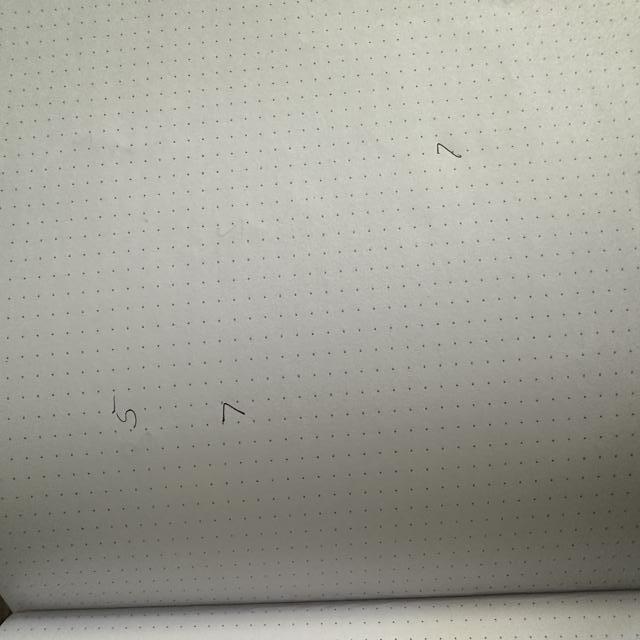 2
5 7